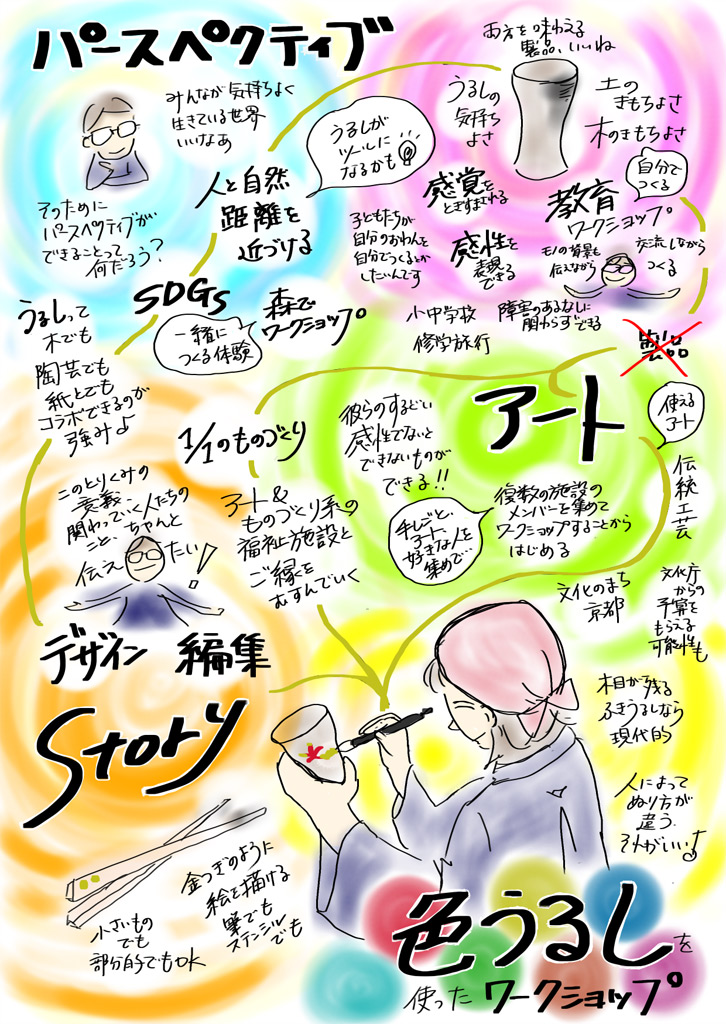 パースペクティブ
みんなが気持ちよく
生きている世界
いいなぁ
そのために
パースペクティブが
できることって
何だろう?
人と自然
距離を
近づける
うるしが
ツールに
なるかも
両方を味わえる
製品、いいね
うるしの
気持ち
よさ
土の
きもちよさ
木のきもちよさ
感覚を
とぎすまされる
感性を
表現
できる
自分で
つくる
教育
ワークショップ
モノの背景も
伝えながら
交流しながら
つくる
子どもたちが
自分のおわんを
自分でつくるとか
したいんです
小中学校
修学旅行
障害のあるなしに
関わらずできる
製品
SDGs
一緒に
つくる体験
森で
ワークショップ
うるしって
木でも
陶芸でも
紙とでも
コラボできるのが
強みよ
アート
使える
アート
伝統工芸
1/1のものづくり
彼らのするどい
感性でないと
できないものが
できる!!
アート&
ものづくり系の
福祉施設と
ご縁を
むすんでいく
手しごと、
アート、
好きな人を
集めて…
複数の施設の
メンバーを集めて
ワークショップすることから
はじめる
文化のまち
京都
文化庁
からの
予算を
もらえる
可能性も
このとりくみの
意義、
関わっていく人たちの
こと、ちゃんと
伝えたい!
デザイン 編集
Story
木目が残る
ふきうるしなら
現代的
人によって
ぬり方が
違う
それがいいよ
金つぎのように
絵を描ける
筆でも
ステンシルでも
小さいもの
でも
部分的でもOK
色うるしを
使ったワークショップ